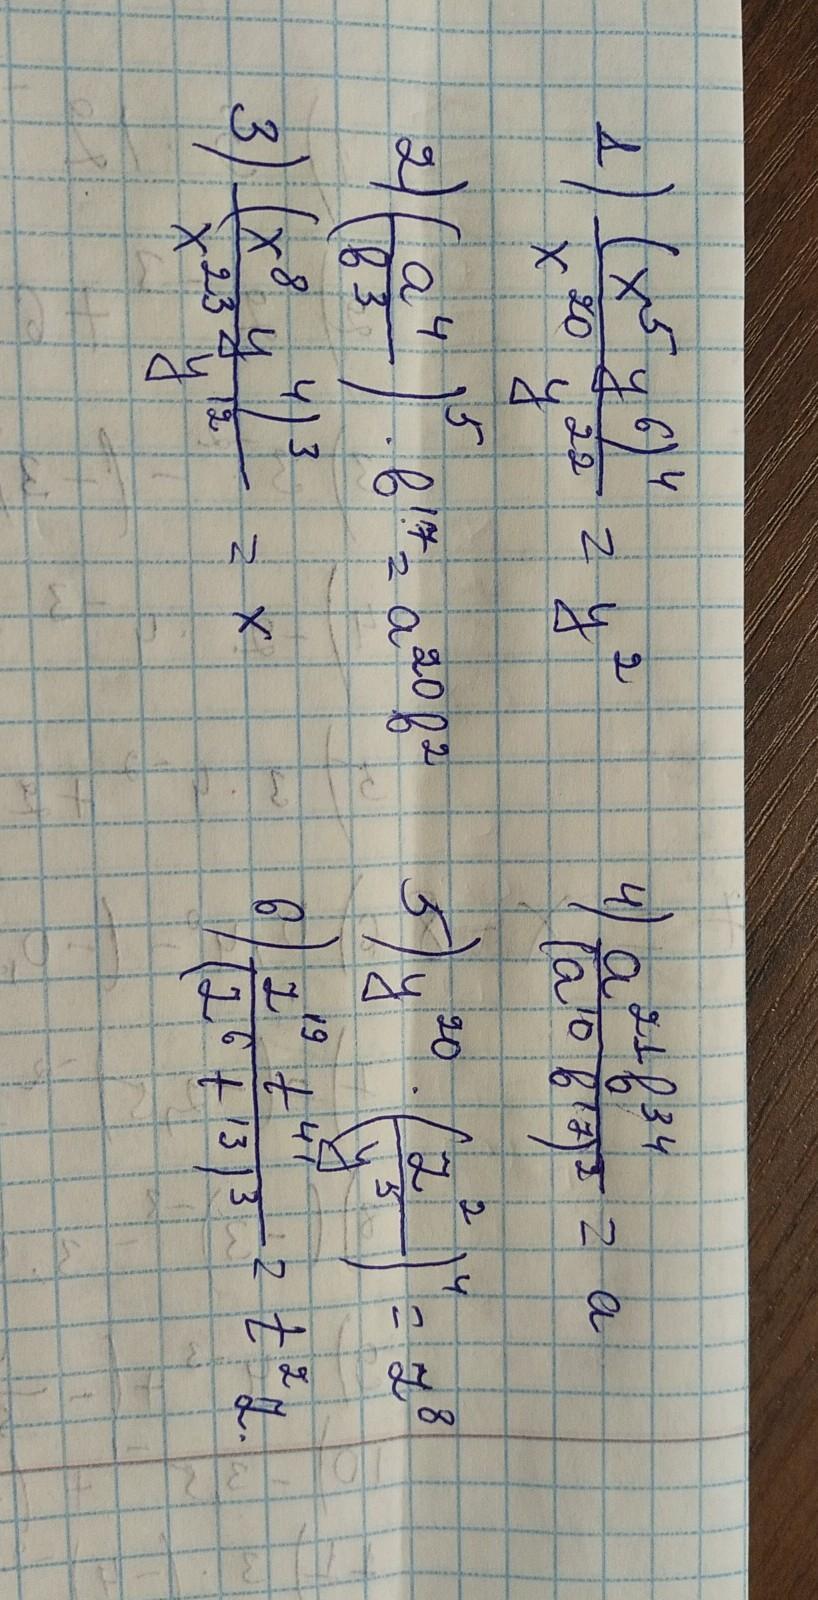 1) (x⁵y⁶)⁴ / x²⁰y²² = y²
2) (a⁴ / b³)⁵ · b¹⁷ = a²⁰b²
3) (x⁸y⁴)³ / x²³y¹² = x
4) a²¹b³⁴ / (a¹⁰b¹⁷)² = a
5) y²⁰ · (z² / y⁵)⁴ = z⁸
6) z¹⁹t⁴¹ / (z⁶t¹³)³ = t²z.